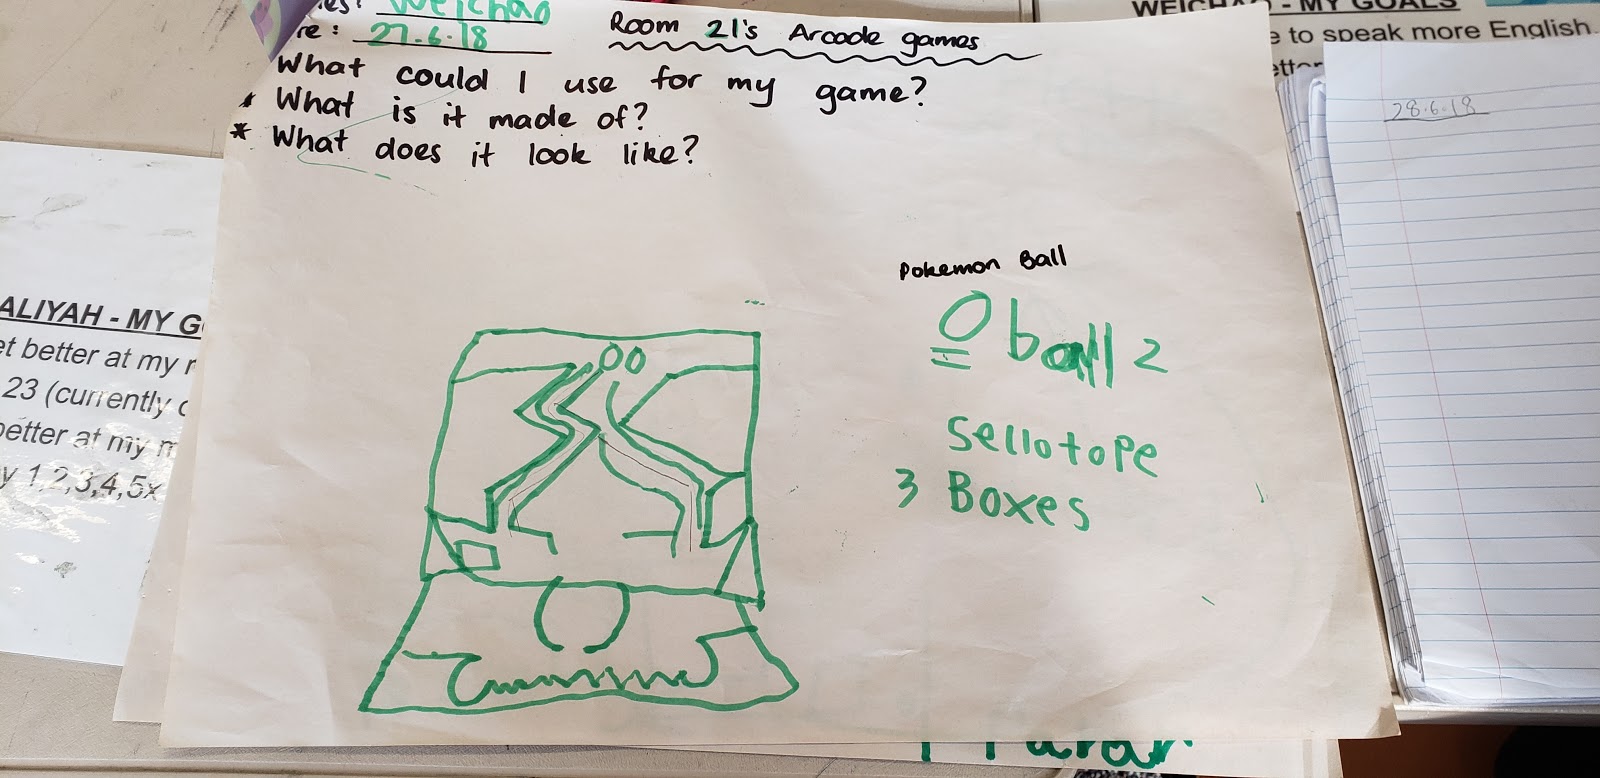 Weichao
27.6.18
Room 21's Arcade games
What could I use for my game?
* What is it made of?
* What does it look like?
Pokemon Ball
ball 2
sellotope
3 Boxes
WEICHAO - MY GOALS
e to speak more English.
28.6.18
ALIYAH - MY G
et better at my r
23 (currently
better at my m
y 1,2,3,4,5x